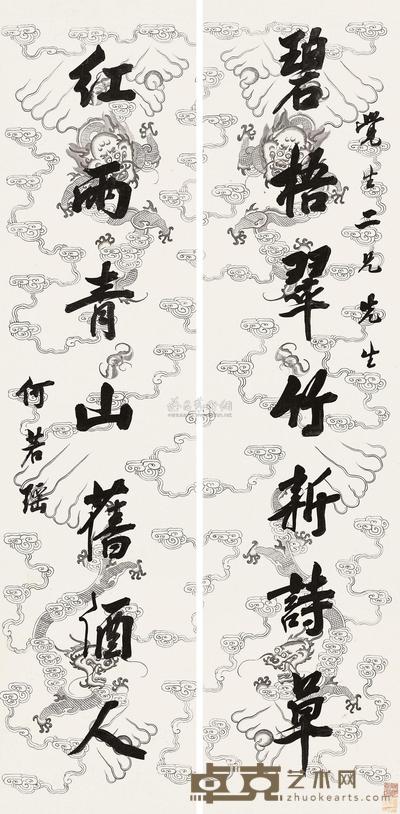 覺生二兄先生
碧梧翠竹新詩草
紅雨青山舊酒人
何若瑶
卓克艺术网
zhuokearts.com